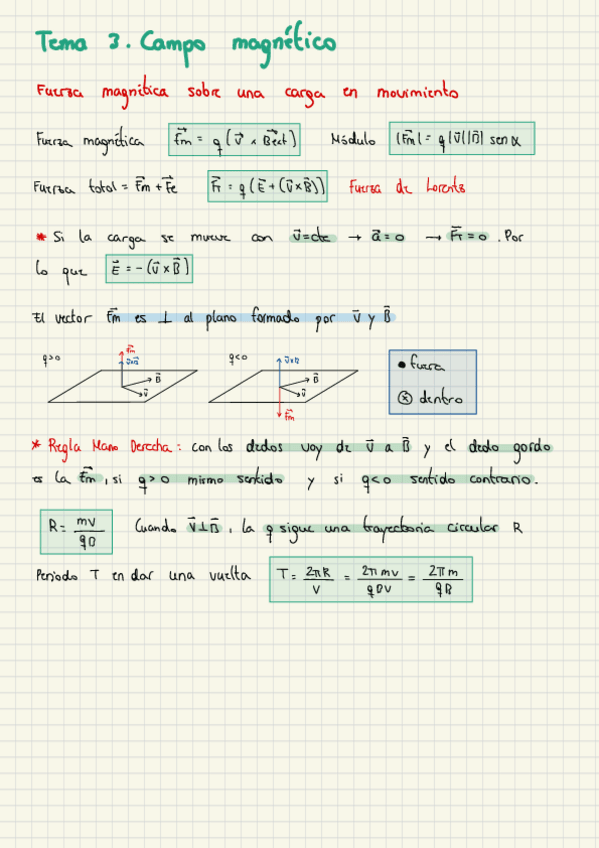 Tema 3. Campo magnético
Fuerza magnética sobre una carga en movimiento
Fuerza magnética F⃗m = q (v⃗ × B⃗ext) Módulo |F⃗m| = q |v⃗| |B⃗| sen α
Fuerza total = F⃗m + F⃗e F⃗T = q (E⃗ + (v⃗ × B⃗)) Fuerza de Lorentz
* Si la carga se mueve con v⃗ = cte → a⃗ = 0 → F⃗T = 0. Por
lo que E⃗ = - (v⃗ × B⃗)
El vector F⃗m es ⊥ al plano formado por v⃗ y B⃗
q>0 F⃗m v⃗×B⃗ B⃗ v⃗ q<0 v⃗×B⃗ B⃗ v⃗ F⃗m
• fuera
⊗ dentro
* Regla Mano Derecha: con los dedos voy de v⃗ a B⃗ y el dedo gordo
es la F⃗m, si q>0 mismo sentido y si q<0 sentido contrario.
R = mv / qB Cuando v⃗ ⊥ B⃗, la q sigue una trayectoria circular R
Periodo T en dar una vuelta T = 2πR / v = 2π mv / qBv = 2π m / qB